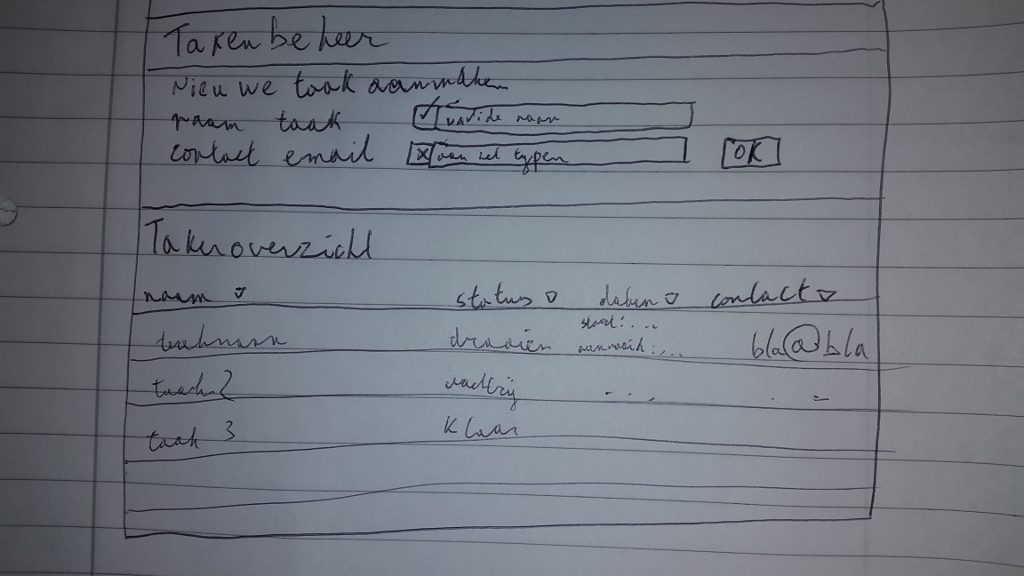 Takenbeheer
Nieuwe taak aanmaken
naam taak valide naam
contact email aan het typen OK
Takenoverzicht
naam status datum contact
taaknaam draaien start:... bla@bla
taak 2 ...
taak 3 klaar